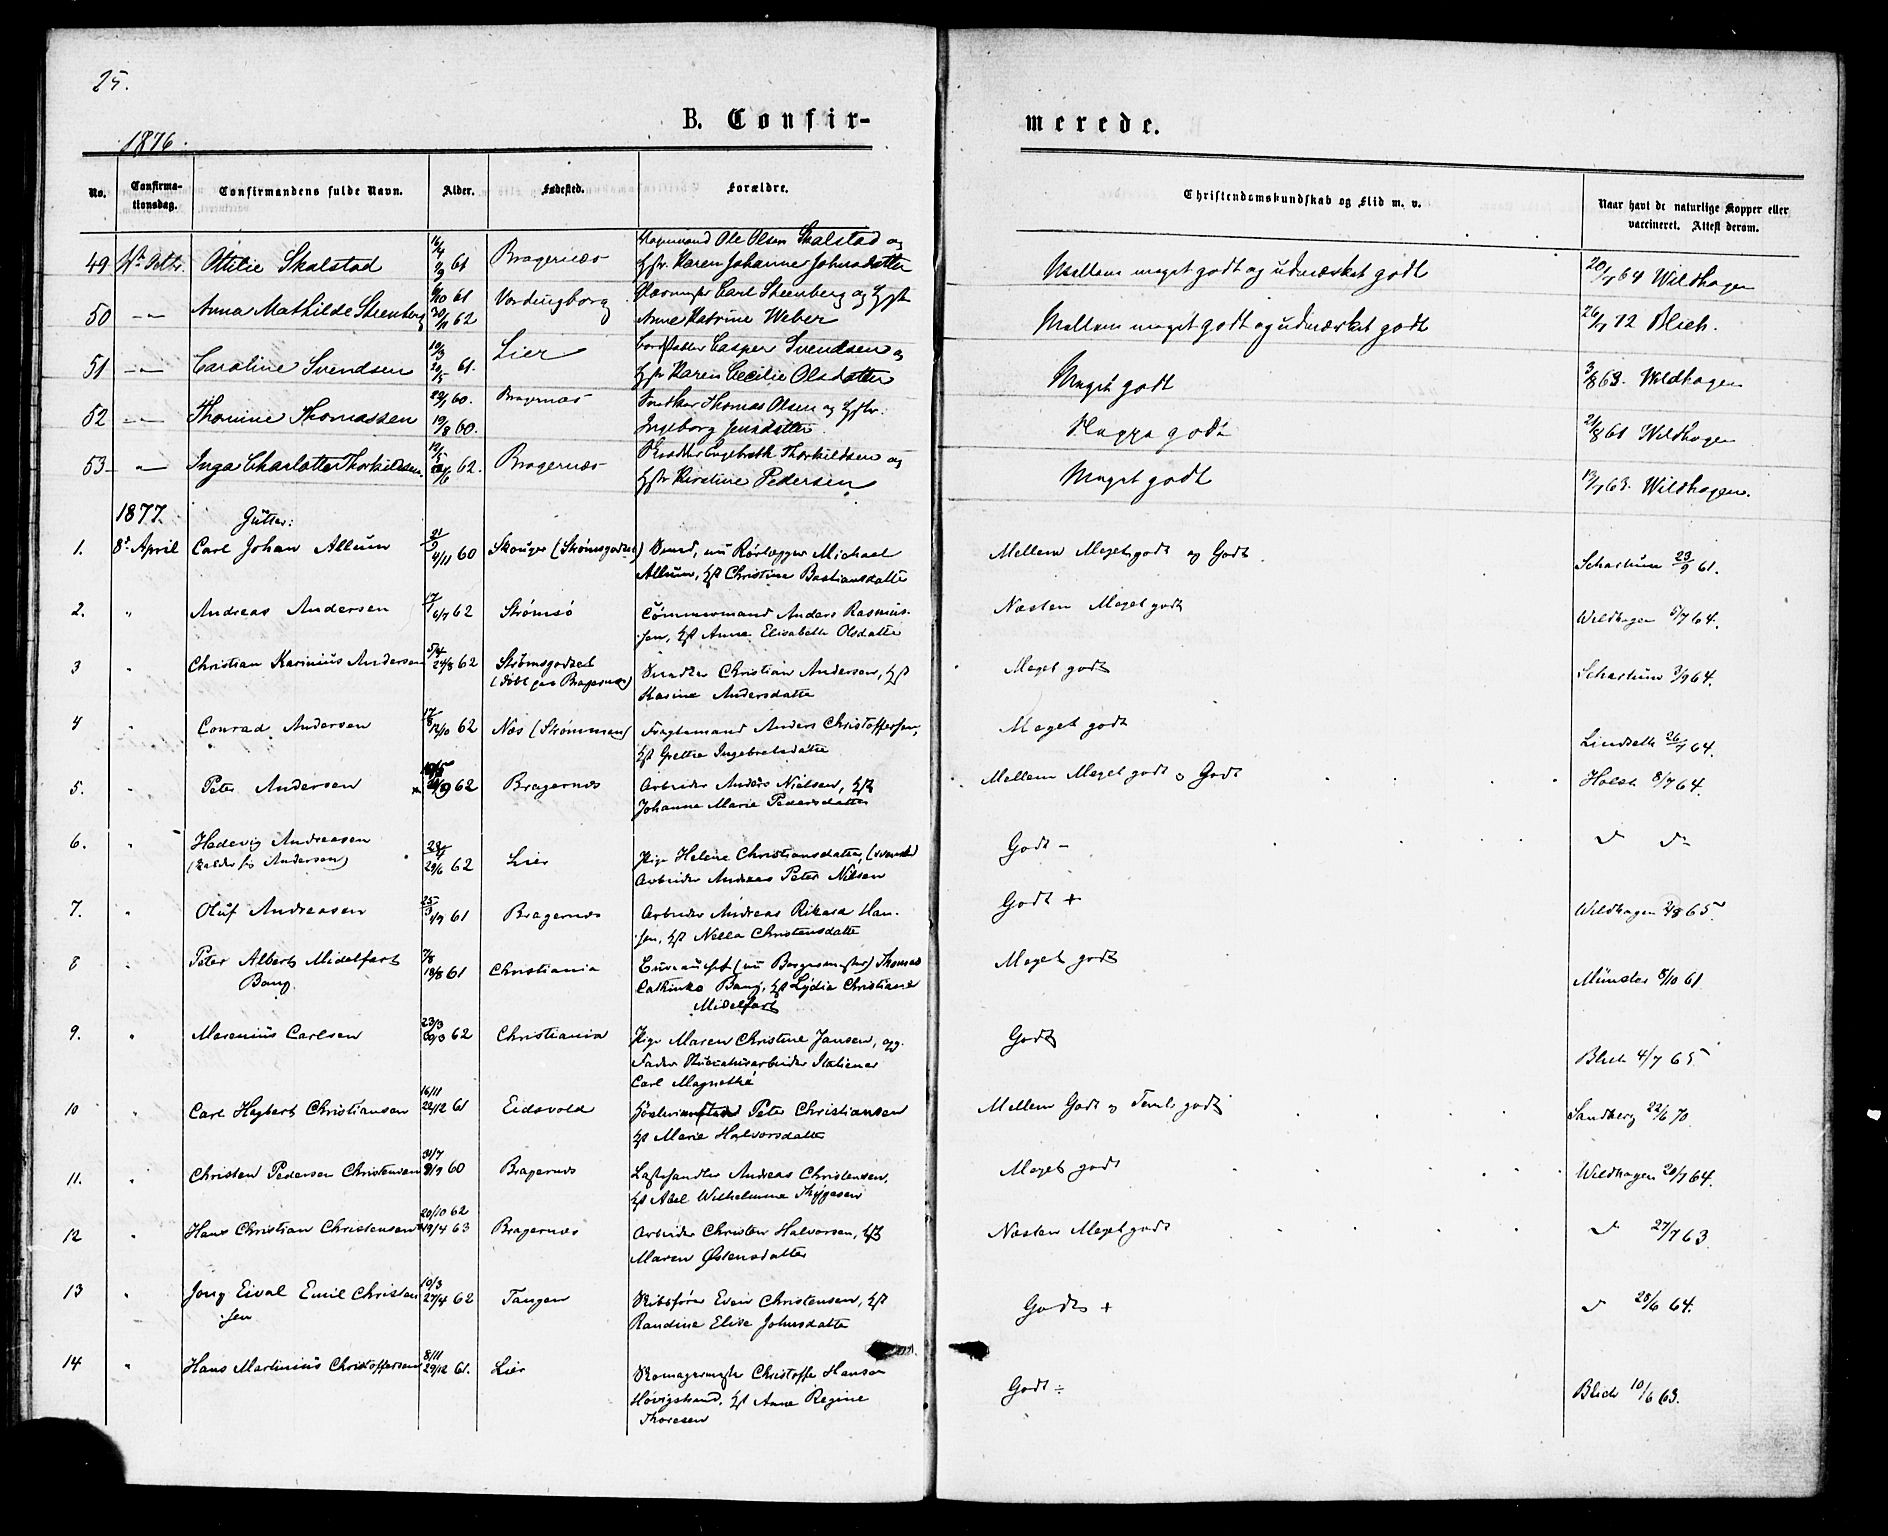 25.
B. Confir-
merede.
1876.
No.
Confirma-
tionsdag.
Confirmandens fulde Navn.
Alder.
Fødested.
Forældre.
Christendomskundskab og Flid m. v.
Naar havt de naturlige Kopper eller
vaccineret. Attest derom.
49 Otilie Skalstad 61 Bragernæs Ole Olsen Skalstad og
Karen Johanne Johnsdatter
Mellem meget godt og udmærket godt
64 Wildhagen
50 Anna Mathilde Steenberg 61 62 Vordingborg Carl Steenberg og
Anne Katrine Weber
Mellem meget godt og udmærket godt
72 Blich.
51 Caroline Svendsen 61. Lier Casper Svendsen og
Karen Cecilie Olsdatter
Meget godt
63. Wildhagen
52 Thomine Thomassen 60. 19/8 60. Bragernæs Thomas Olsen og
Ingeborg Jensdatter
godt
21/8 61 Wildhagen
53 Inga Charlotte Thorkildsen 62. Bragernæs Engebreth Thorkildsen og
Kirstine Pedersen
Meget godt
63. Wildhagen.
1877. Gutter:
1. 8de April Carl Johan Allum 4/11 60 Skouger (Strømsgodset) nu Rørlægger Michael
Allum, Christine Bastiansdatter
Mellem Meget godt og Godt
Scharlum 23/9 61.
2. " Andreas Andersen 6/7 62 Strømsø Tømmermand Anders Rasmus-
sen, Anne Elisabeth Olsdatter
Næsten Meget godt
Wildhagen 5/7 64.
3 " Christian Karinius Andersen 5/4 24/8 62 Strømsgodset
(døbt paa Bragernæs)
Christian Andersen,
Karine Andersdatter
Meget godt
Scharlum 3/9 64.
4 " Conrad Andersen 12/10 62 Næs (Strømmen) Fragtemand Anders Christoffersen,
Grethe Ingebretsdatter
Meget godt
Lindseth 26/7 64.
5. " Peter Andersen 62 Bragernæs Arbeider Anders Nielsen,
Johanne Marie Pedersdatter
Mellem Meget godt o Godt
Holst 8/7 64.
6. " Hedevig Andreasen
(kalder sig Andersen)
29/6 62 Lier Pige Helene Christiansdatter,
Arbeider Andreas Peter Nilsen
Godt -
7. " Oluf Andreasen 25/3 1/9 61 Bragernæs Arbeider Andreas Rikard Han-
sen, Nella Christensdatter
Godt +
Wildhagen 2/8 65.
8 " Peter Albert Midelfart
Bang
7/8 18/8 61 Christiania (nu Borgermester) Thomas
Cathinko Bang, Lydia Christiane
Midelfart
Meget godt
Münster 8/10 61
9. " Marenius Carlsen 23/3 62 Christiania Pige Maren Christine Jansen, opg.
Fader Stukaturarbeider Italiener
Carl Magnethé
Godt
Blich 4/7 65
10 " Carl Hegbert Christiansen 16/11 22/12 61 Eidsvold Peter Christiansen
Marie Halvorsdatter
Mellem Godt o Temli godt
Sandberg 22/6 70.
11. " Christen Pedersen Christensen 31/7 60 Bragernæs Andreas Christensen,
Abel Wilhelmine Thygesen
Meget godt
Wildhagen 20/7 64.
12 " Hans Christian Christensen 20/10 62 19/4 63 Bragernæs Arbeider Christen Halvorsen,
Maren Østensdatter
Næsten Meget godt
27/7 63.
13 " Eival Emil Christen
sen
10/3 27/4 62 Tangen Skibsfører Even Christensen,
Randine Elise Johnsdatter
Godt +
28/6 64.
14 " Hans Martinius Christoffersen 8/11 29/12 61. Lier Christoffer Hansen
Høvigstrand, Anne Regine
Thoresen
Godt ÷
Blich 10/6 63.